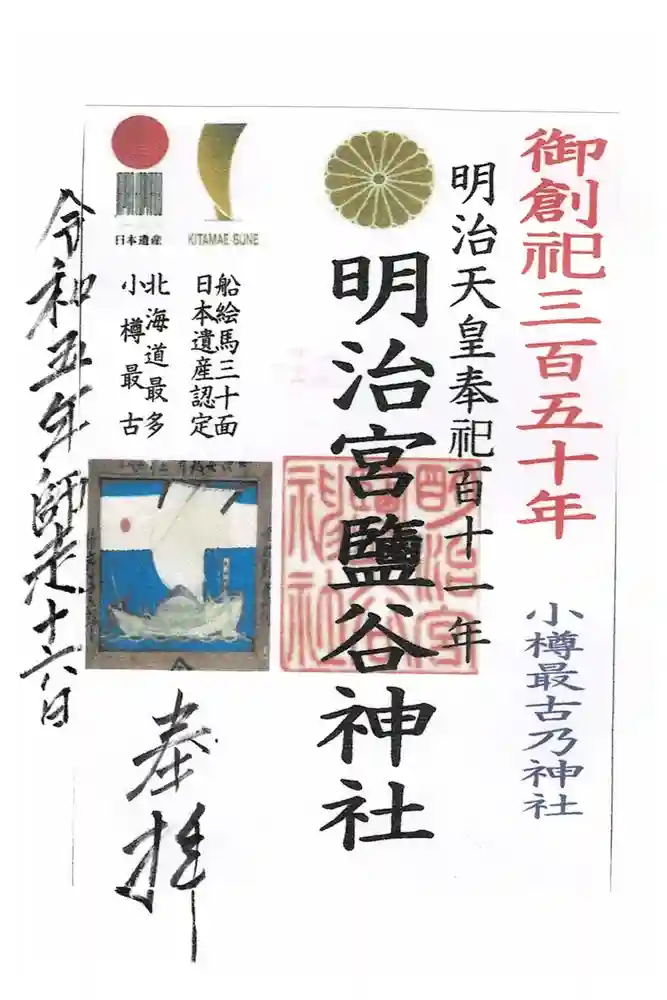 御創祀三百五十年
小樽最古乃神社
明治天皇奉祀百十一年
明治宮鹽谷神社
KITAMAE BUNE
船絵馬三十面
日本遺産認定
日本遺産
北海道最多
小樽最古
奉拝
令和五年師走十六日